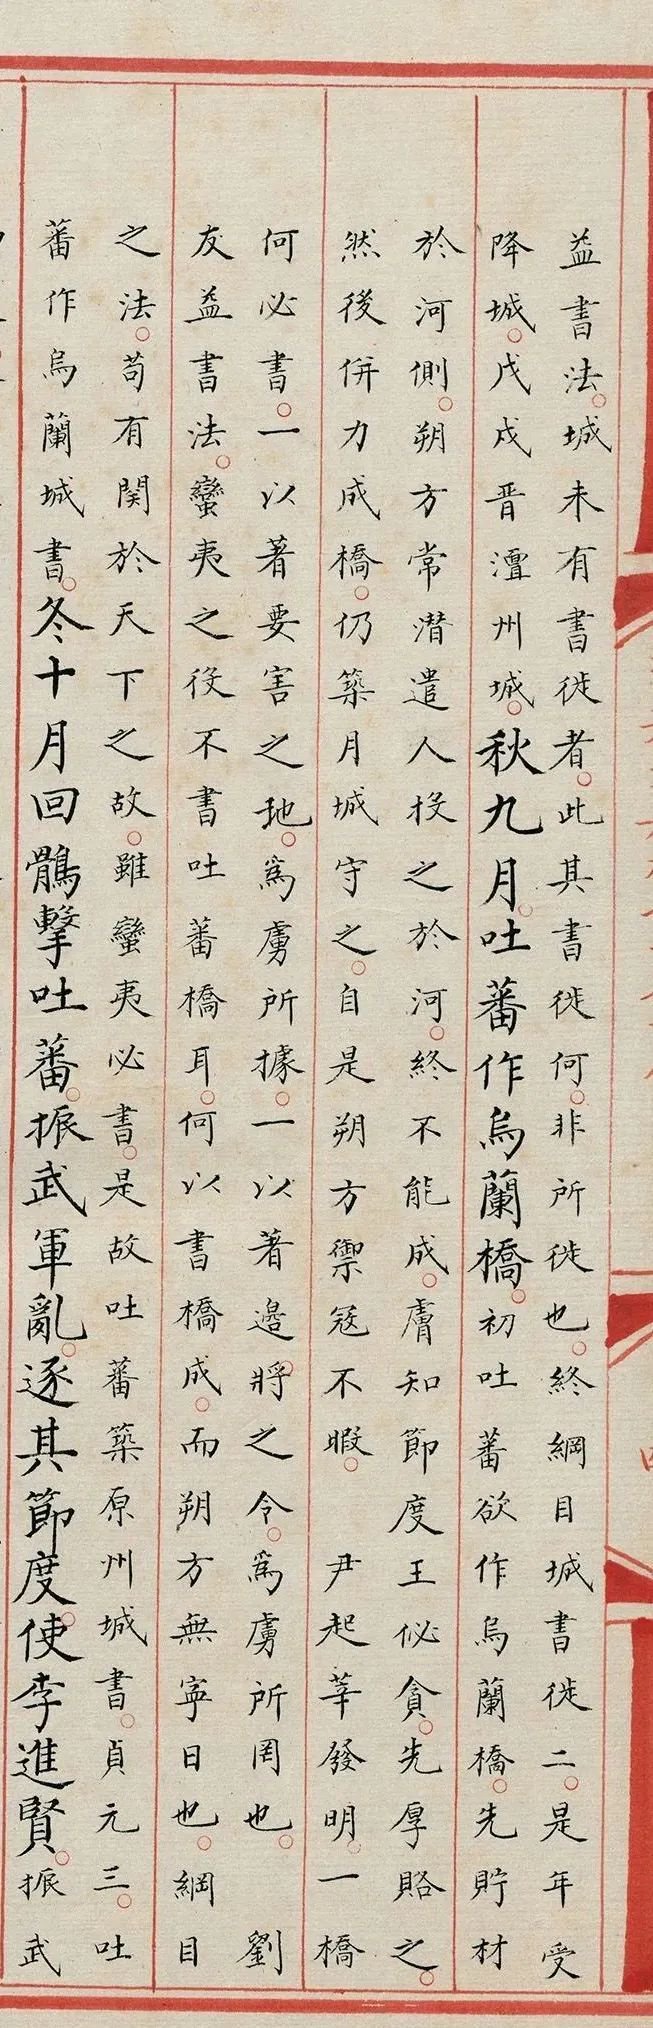 益書法。城未有書徙者。此其書徙何。非所徙也。終綱目城書徙二。是年受
降城。戊戌晋澶州城。秋九月。吐蕃作烏蘭橋。初吐蕃欲作烏蘭橋。先貯材
於河側。朔方常潜遣人投之於河。終不能成。虜知節度王佖貪。先厚賂之。
然後併力成橋。仍築月城守之。自是朔方禦冦不暇。 尹起莘發明。一橋
何必書。一以著要害之地。為虜所據。一以著邉將之令。為虜所罔也。 劉
友益書法。蠻夷之役不書吐蕃橋耳。何以書橋成。而朔方無寜日也。綱目
之法。苟有関於天下之故。雖蠻夷必書。是故吐蕃築原州城書。貞元三。吐
蕃作烏蘭城書。冬十月回鶻擊吐蕃。振武軍亂。逐其節度使李進賢。振武